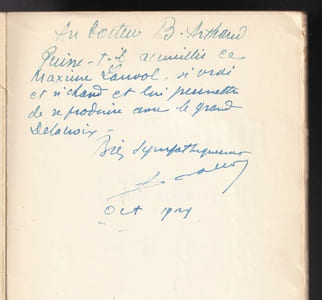 Au docteur B. Arthaud
Puisse-t-il accueillir ce
Maxime si vrai
et si chaud et lui permettre
de se produire avec le grand
Delacroix -
Bien sympathiquement
Oct 1924